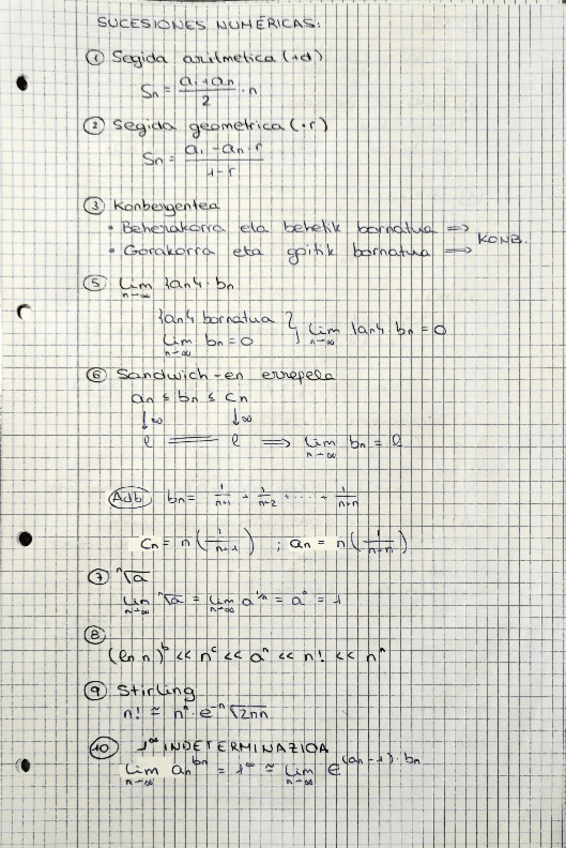 SUCESIONES NUMÉRICAS:
① Segida aritmetica (+d)
Sn = (a₁ + an)/2 · n
② Segida geometrica (·r)
Sn = (a₁ - an·r)/(1-r)
③ Konbergentea
• Beherakorra eta behetik bornatua ⇒
• Gorakorra eta goitik bornatua ⇒ KONB.
⑤ lim n→∞ {an} · bn
{an} bornatua
lim n→∞ bn = 0 } lim n→∞ {an} · bn = 0
⑥ Sandwich-en erregela
an ≤ bn ≤ cn
↓∞ ↓∞
l = l ⇒ lim n→∞ bn = l
Adb bn = 1/(n+1) + 1/(n+2) + ... + 1/(n+n)
cn = n(1/(n+1)) ; an = n(1/(n+n))
⑦ ⁿ√a
lim n→∞ ⁿ√a = lim n→∞ a^(1/n) = a⁰ = 1
⑧
(ln n)^b << n^c << a^n << n! << n^n
⑨ Stirling
n! ≅ n^n · e^-n √2πn
⑩ 1^∞ INDETERMINAZIOA
lim n→∞ an^bn = 1^∞ ≅ lim n→∞ e^((an-1)·bn)